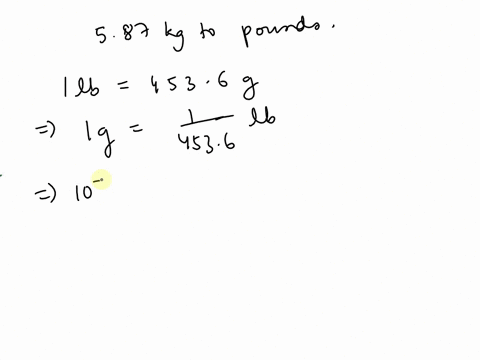 5.87 kg to pounds.
1 lb = 453.6 g
=> 1g = 1/453.6 lb
=> 10⁻